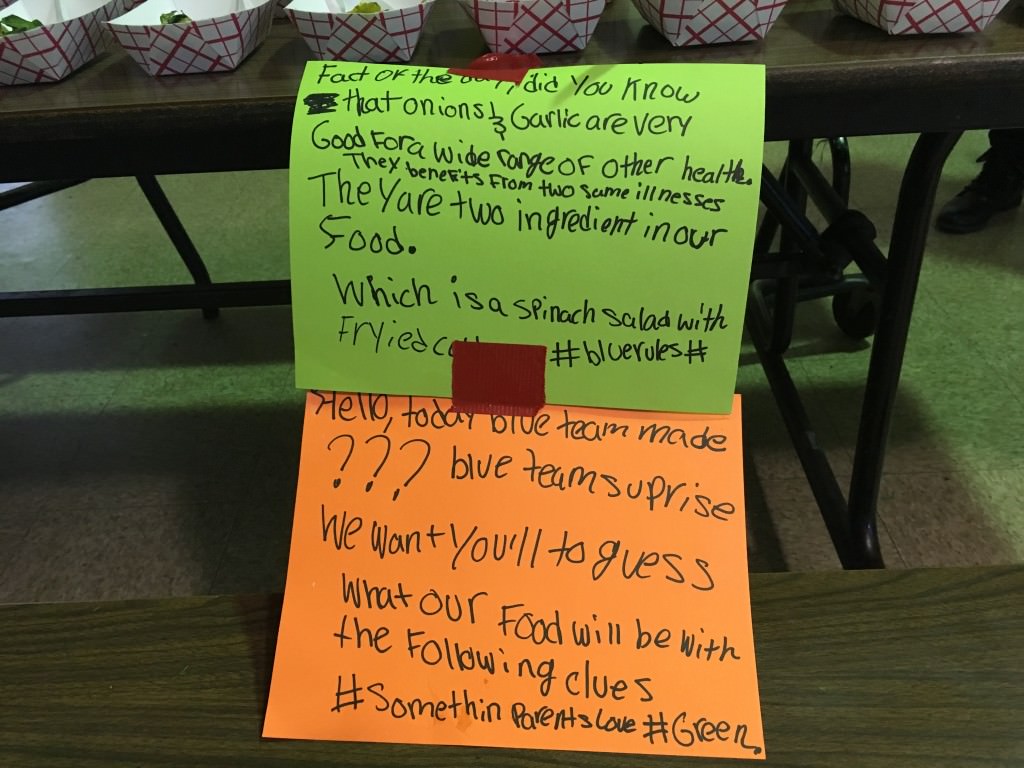 Fact of the day, did You Know
that onions & Garlic are very
Good For a wide range of other health.
They benefits From two some illnesses
They are two ingredient in our
Food.
Which is a spinach salad with
Fryied
#bluerules#
Hello, today blue team made
??? blue team suprise
We want You'll to guess
What our Food will be with
the Following clues
#Somethin Parents Love #Green.